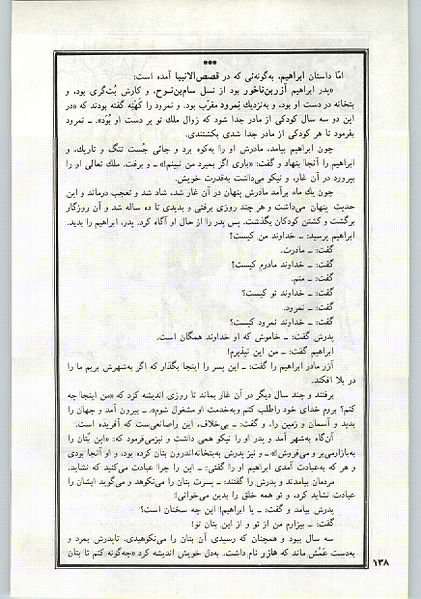 ***
امّا داستان ابراهیم، به‌گونه‌ئی که در قصص‌الانبیا آمده است:
«پدر ابراهیم آزربن‌ناخور بود از نسل سام‌بن‌نوح، و کارش بُت‌گری بود، و
بتخانه در دست او بود، و به‌نزدیك نِمرود مقرّب بود. و نمرود را کَهَنِه گفته بودند که «در
این دو سه سال کودکی از مادر جدا شود که زوال ملك تو بر دست او بُوَد». ــ نمرود
بفرمود تا هر کودکی از مادر جدا شدی بکشتندی.
چون ابراهیم بیامد، مادرش او را به‌کوه برد و جائی جُست تنگ و تاریك، و
ابراهیم را آنجا بنهاد و گفت: «باری اگر بمیرد من نبینم!» ــ و برفت. ملك تعالی او را
بپرورد در آن غار، و نیکو می‌داشت به‌قدرت خویش.
چون یك ماه برآمد مادرش پنهان در آن غار شد، شاد شد و تعجب درماند و این
حدیث پنهان می‌داشت و هر چند روزی برفتی و بدیدی تا ده ساله شد و آن روزگار
برگشت و کشتن کودکان بگذشت. پس پدر را از حال او آگاه کرد. پدر، ابراهیم را بدید.
ابراهیم پرسید: ــ خداوند من کیست؟
گفت: ــ مادرت.
گفت: ــ خداوند مادرم کیست؟
گفت: ــ منم.
گفت: ــ خداوند تو کیست؟
گفت: ــ نمرود.
گفت: ــ خداوند نمرود کیست؟
پدرش گفت: ــ خاموش که او خداوند همگان است.
ابراهیم گفت: ــ من این نپذیرم!
آزر مادر ابراهیم را گفت: ــ این پسر را اینجا بگذار که اگر به‌شهرش بریم ما را
در بلا افکند.
برفتند و چند سال دیگر در آن غار بماند تا روزی اندیشه کرد که «من اینجا چه
کنم؟ بروم خدای خود راطلب کنم وبه‌خدمت او مشغول شوم». ــ بیرون آمد و جهان را
بدید و آسمان و زمین را. و گفت: ــ بی‌خلاف، این راصانعی‌ست که آفریده است.
آن‌گاه به‌شهر آمد و پدر او را نیکو همی داشت و نیزمی‌فرمود که: «این بُتان را
به‌بازارمی‌بر و می‌فروش!» ــ و نیز پدرش به‌بتخانه‌اندرون بتان کرده بود، و او آنجا بودی
و هر که به‌عبادت آمدی ابراهیم او را گفتی: ــ این را چرا عبادت می‌کنید که نشاید.
مردمان بیامدند و پدرش را گفتند: ــ پسرت بتان را می‌نکوهد و می‌گوید ایشان را
عبادت نشاید کرد، و تو همه خلق را بدین می‌خوانی!
پدرش بیامد و گفت: ــ یا ابراهیم! این چه سخنان است؟
گفت: ــ بیزارم من از تو و از این بتان تو!
سه سال ببود و همچنان که رسیدی آن بتان را می‌نکوهیدی. تاپدرش بمرد و
به‌دست عَمَّش ماند که هازر نام داشت. به‌دل خویش اندیشه کرد «چه‌گونه کنم تا بتان
۱۳۸